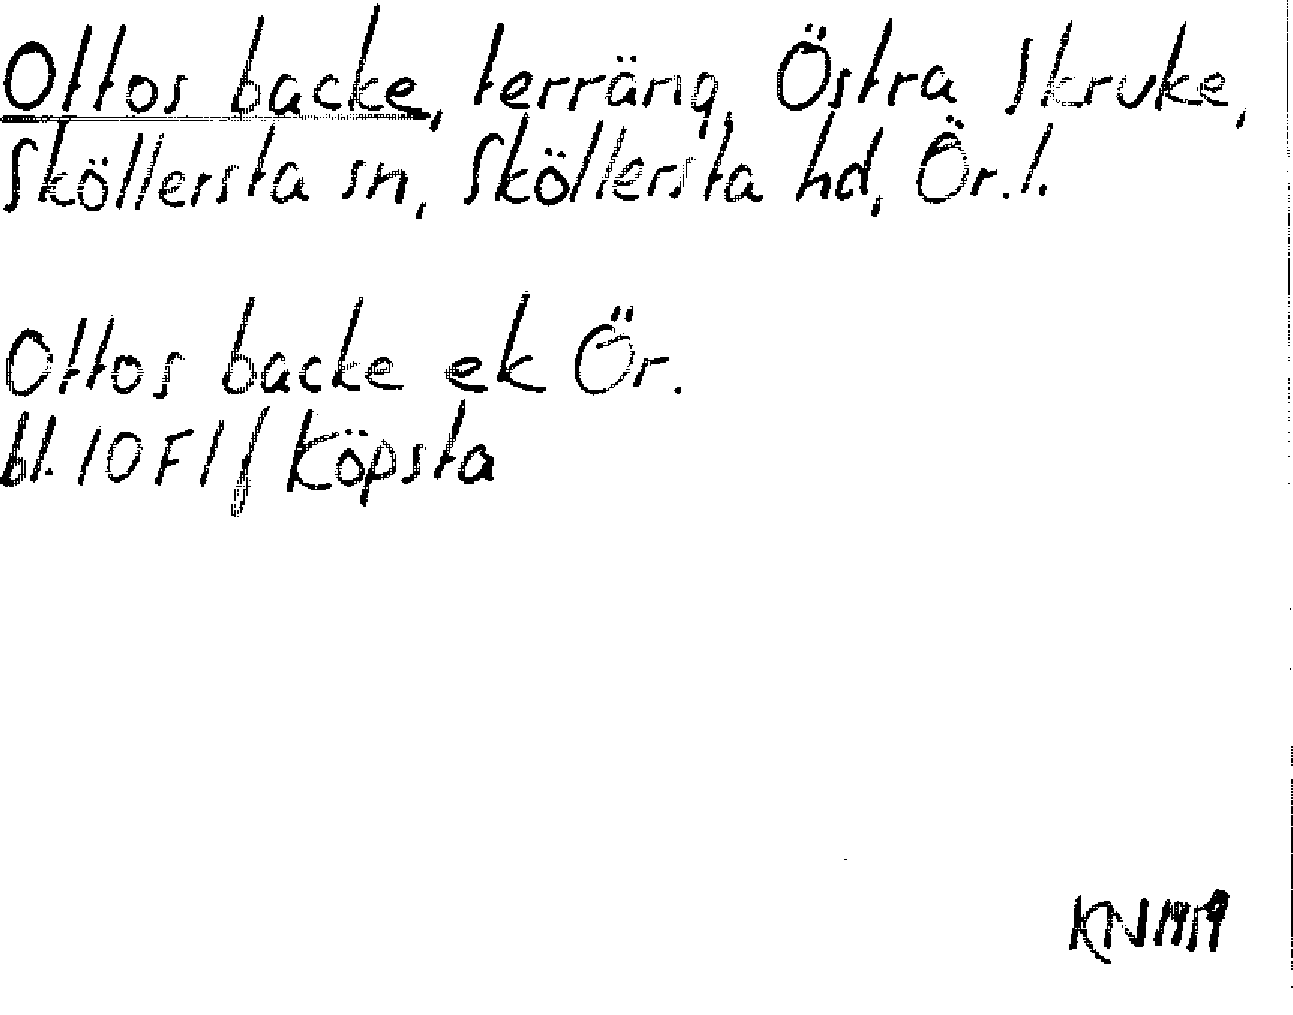 Ottos backe, terräng, Östra Skruke,
Sköllersta sn, Sköllersta hd, Ör. l.
Ottos backe ek Ör.
bl. 10F1f Köpsta
KN 1959